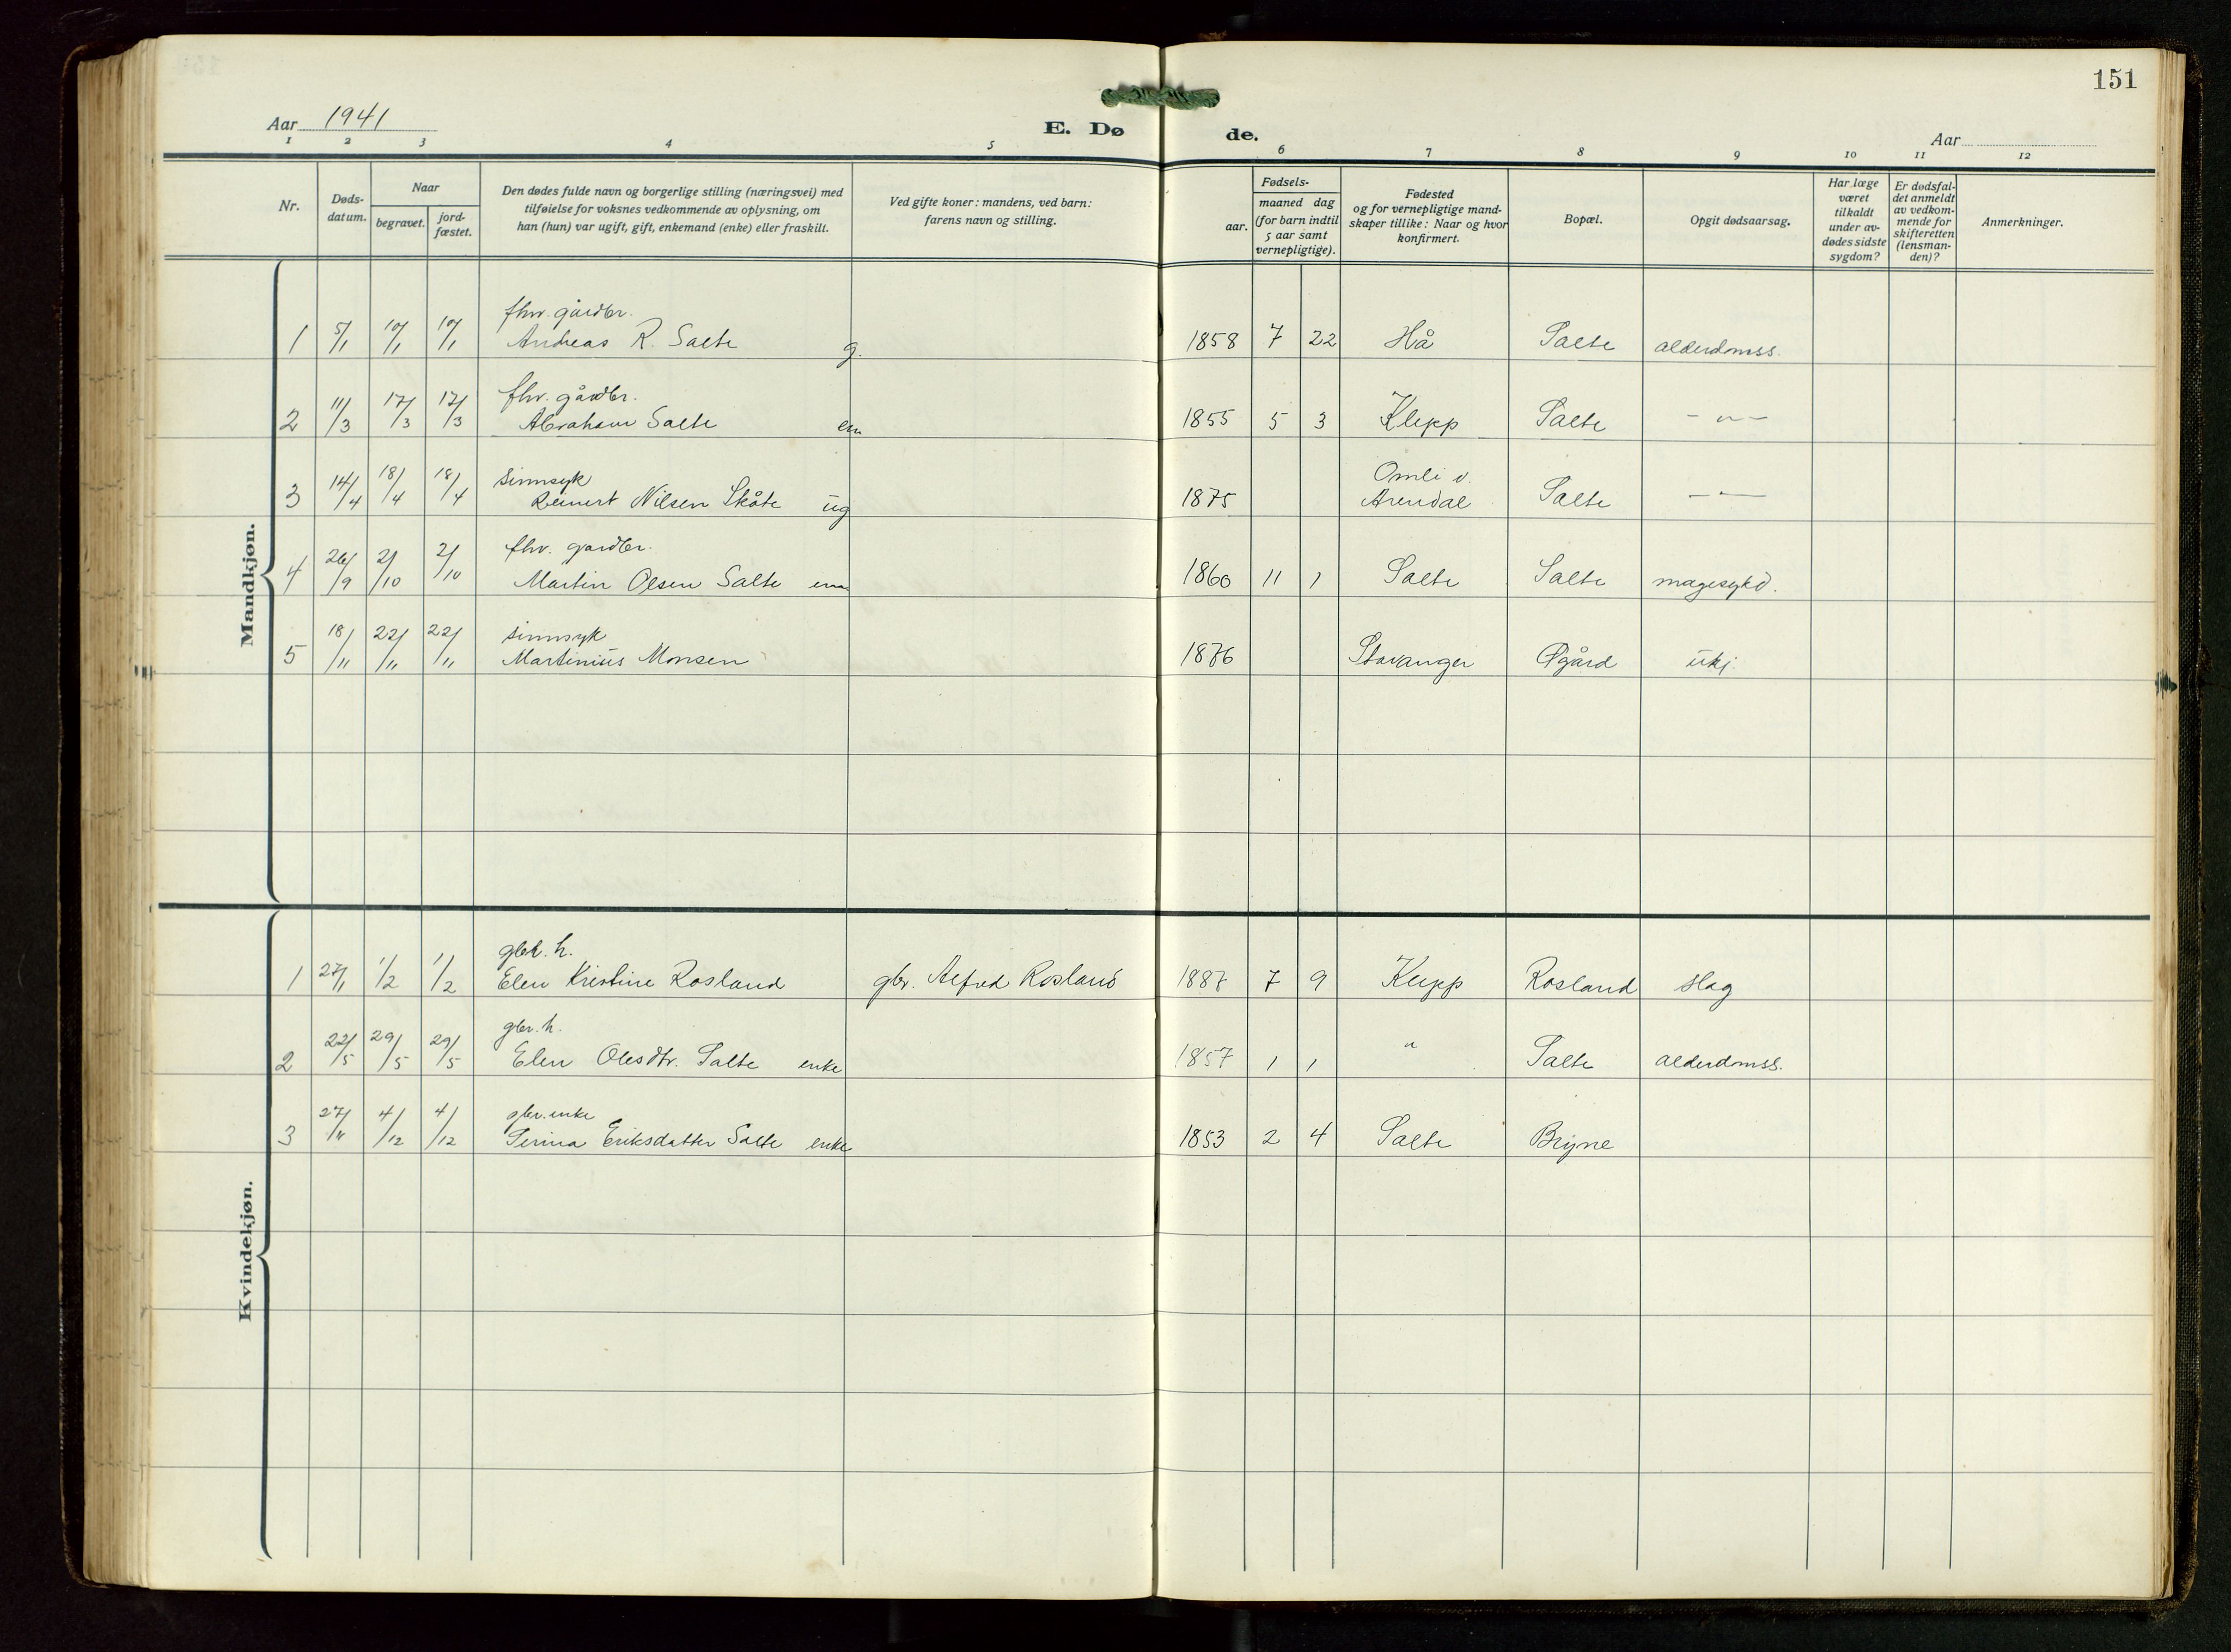 151
Aar 1941
E. Dø de.
Aar
1 2 3 4 5 6 7 8 9 10 11 12
Nr.
Døds-
datum.
Naar
begravet.
jord-
fæstet.
Den dødes fulde navn og borgerlige stilling (næringsvei) med
tilføielse for voksnes vedkommende av oplysning, om
han (hun) var ugift, gift, enkemand (enke) eller fraskilt.
Ved gifte koner: mandens, ved barn:
farens navn og stilling.
Fødsels-
aar.
maaned dag
(for barn indtil
5 aar samt
vernepligtige).
Fødested
og for vernepligtige mand-
skaper tillike: Naar og hvor
konfirmert.
Bopæl.
Opgit dødsaarsag.
Har læge
været
tilkaldt
under av-
dødes sidste
sygdom?
Er dødsfal-
det anmeldt
av vedkom-
mende for
skifteretten
(lensman-
den)?
Anmerkninger.
Mandkjøn.
fhv. gårdbr.
1 5/1 10/1 10/1 Andreas R. Salte g. 1858 7 22 Hå Salte alderdomss.
fhv. gårdbr.
2 11/3 17/3 17/3 Abraham Salte em 1855 5 3 Klepp Salte - " -
sinnsyk Omli v.
3 14/4 18/4 18/4 Reinert Nilsen Skåte ug 1875 Arendal Salte - " -
fhv. gardbr.
4 26/9 2/10 2/10 Martin Olsen Salte em 1860 11 1 Salte Salte magesykd.
sinnsyk
5 18/11 22/11 22/11 Martinius Monsen 1876 Stavanger Øgård ukj.
Kvindekjøn.
gbr. h.
1 27/1 1/2 1/2 Elen Kristine Rosland gbr. Alfred Rosland 1887 7 9 Klepp Rosland slag
gbr. h.
2 22/5 29/5 29/5 Elen Olesdtr. Salte enke 1857 1 1 " Salte alderdomss.
gbr. enke
3 27/11 4/12 4/12 Serina Eriksdatter Salte enke 1853 2 4 Salte Bryne